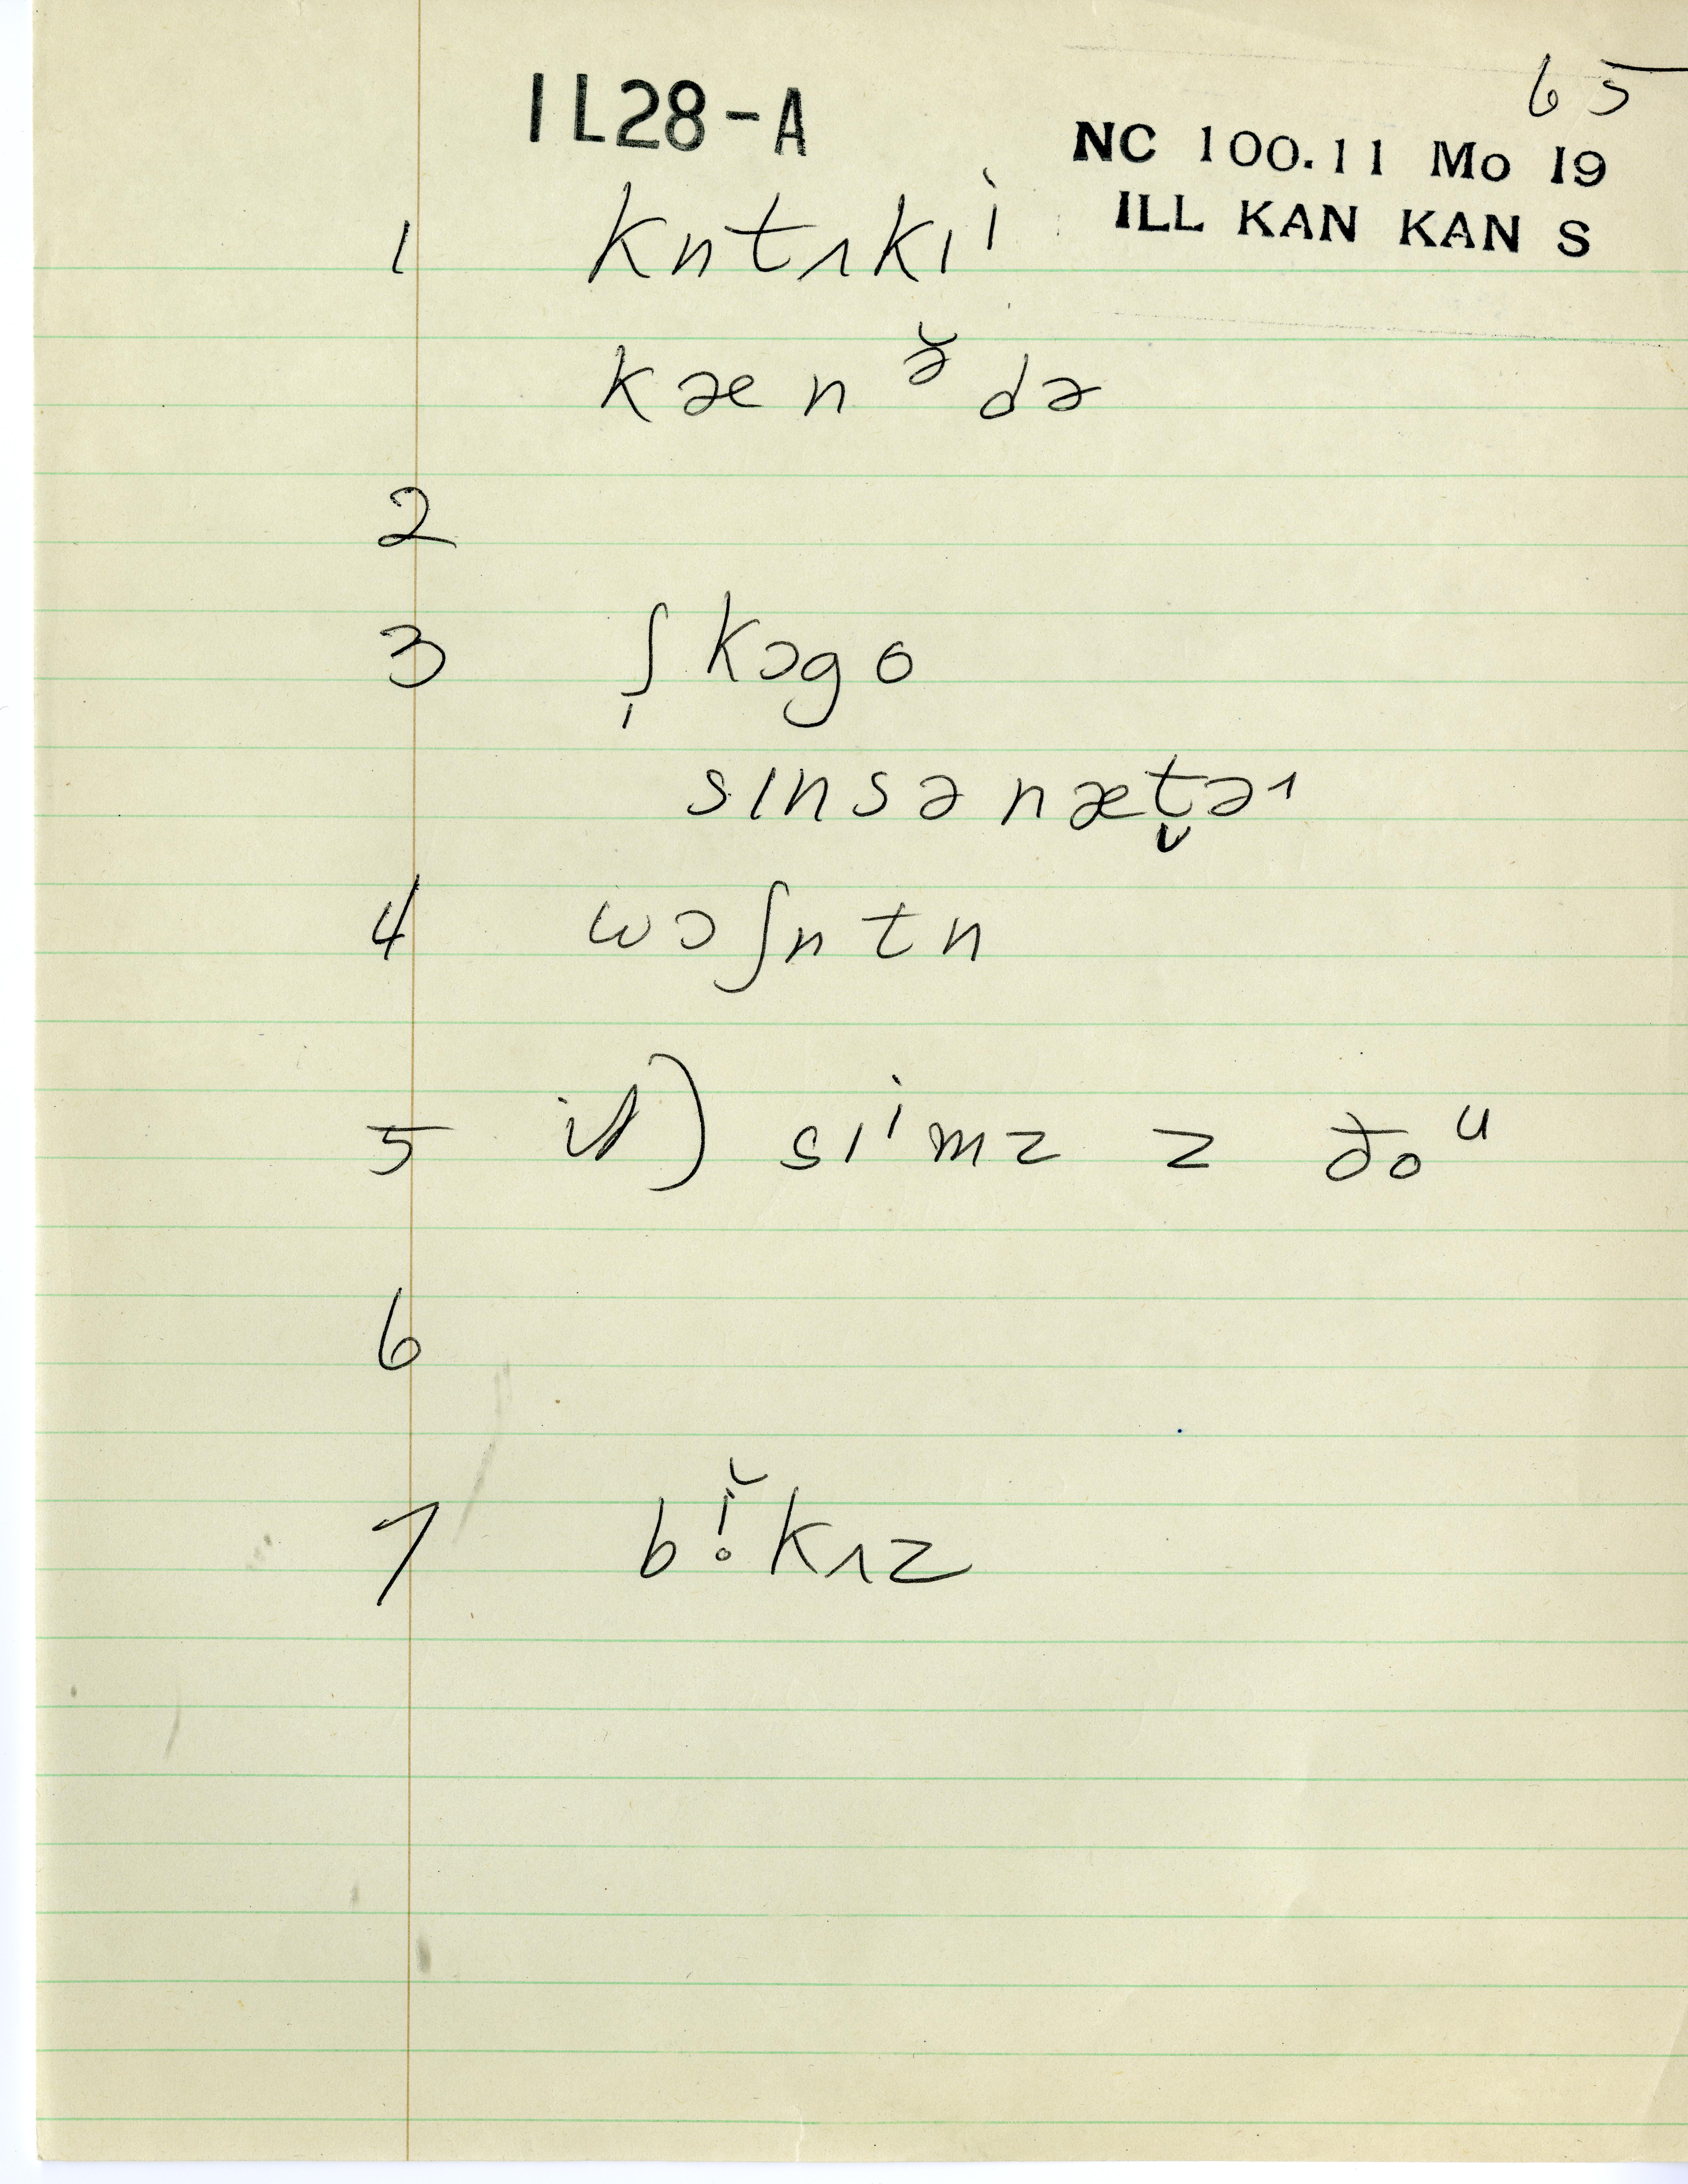 65
IL28-A
NC 100.11 Mo 19
ILL KAN KAN S
1 kntɪkɪⁱ
kænə̆də
2
3 ʃ̩kɔgo
sɪnsənæt̬ɚ
4 wɔʃntn
5 sɪⁱmz z ðoᵘ
6
7 bɪ̥̆kɪz